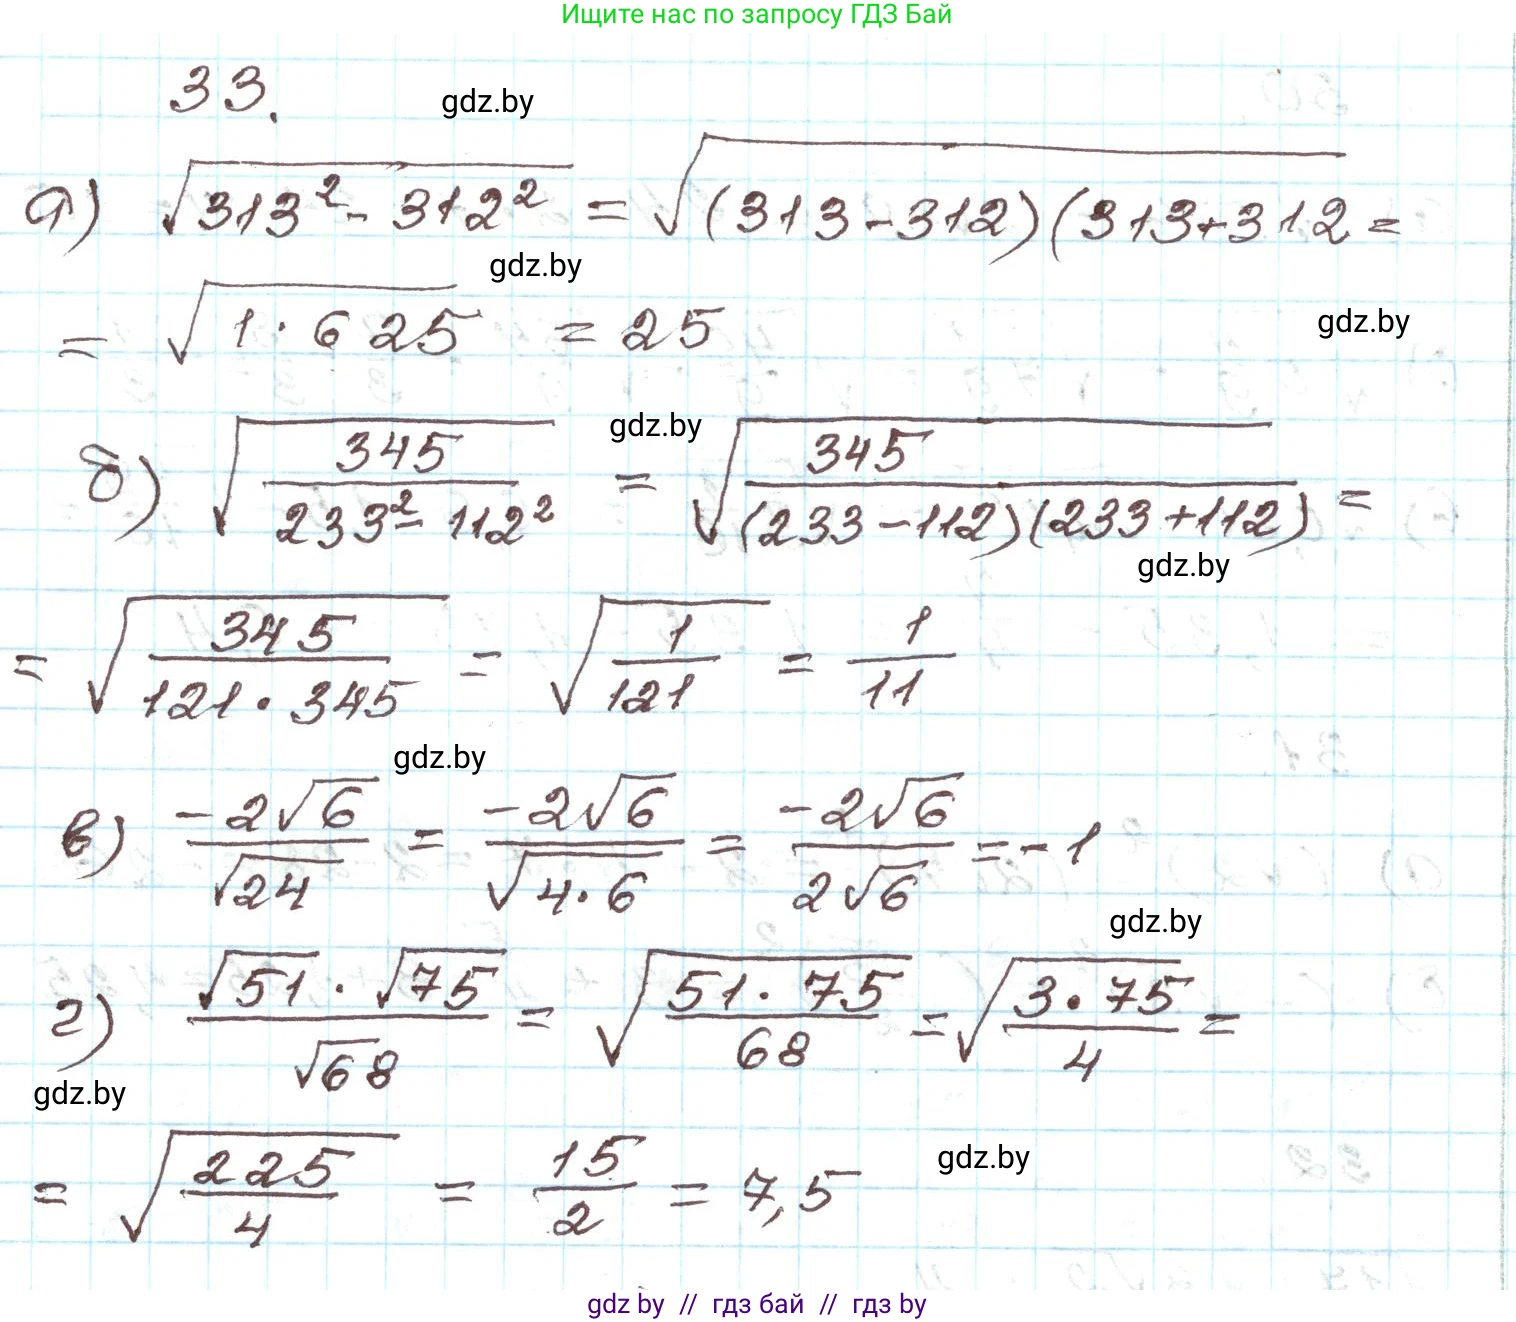 Ищите нас по запросу ГДЗ Бай
33.
gdz.by
а) √313² - 312² = √(313-312)(313+312 =
gdz.by
= √1·625 = 25
gdz.by
б) √345/233²-112² = √345/(233-112)(233+112) =
gdz.by
gdz.by
= √345/121·345 = √1/121 = 1/11
gdz.by
в) -2√6/√24 = -2√6/√4·6 = -2√6/2√6 = -1
gdz.by
г) √51·√75/√68 = √51·75/68 = √3·75/4 =
gdz.by
= √225/4 = 15/2 = 7,5
gdz.by
gdz by // гдз бай // гдз by